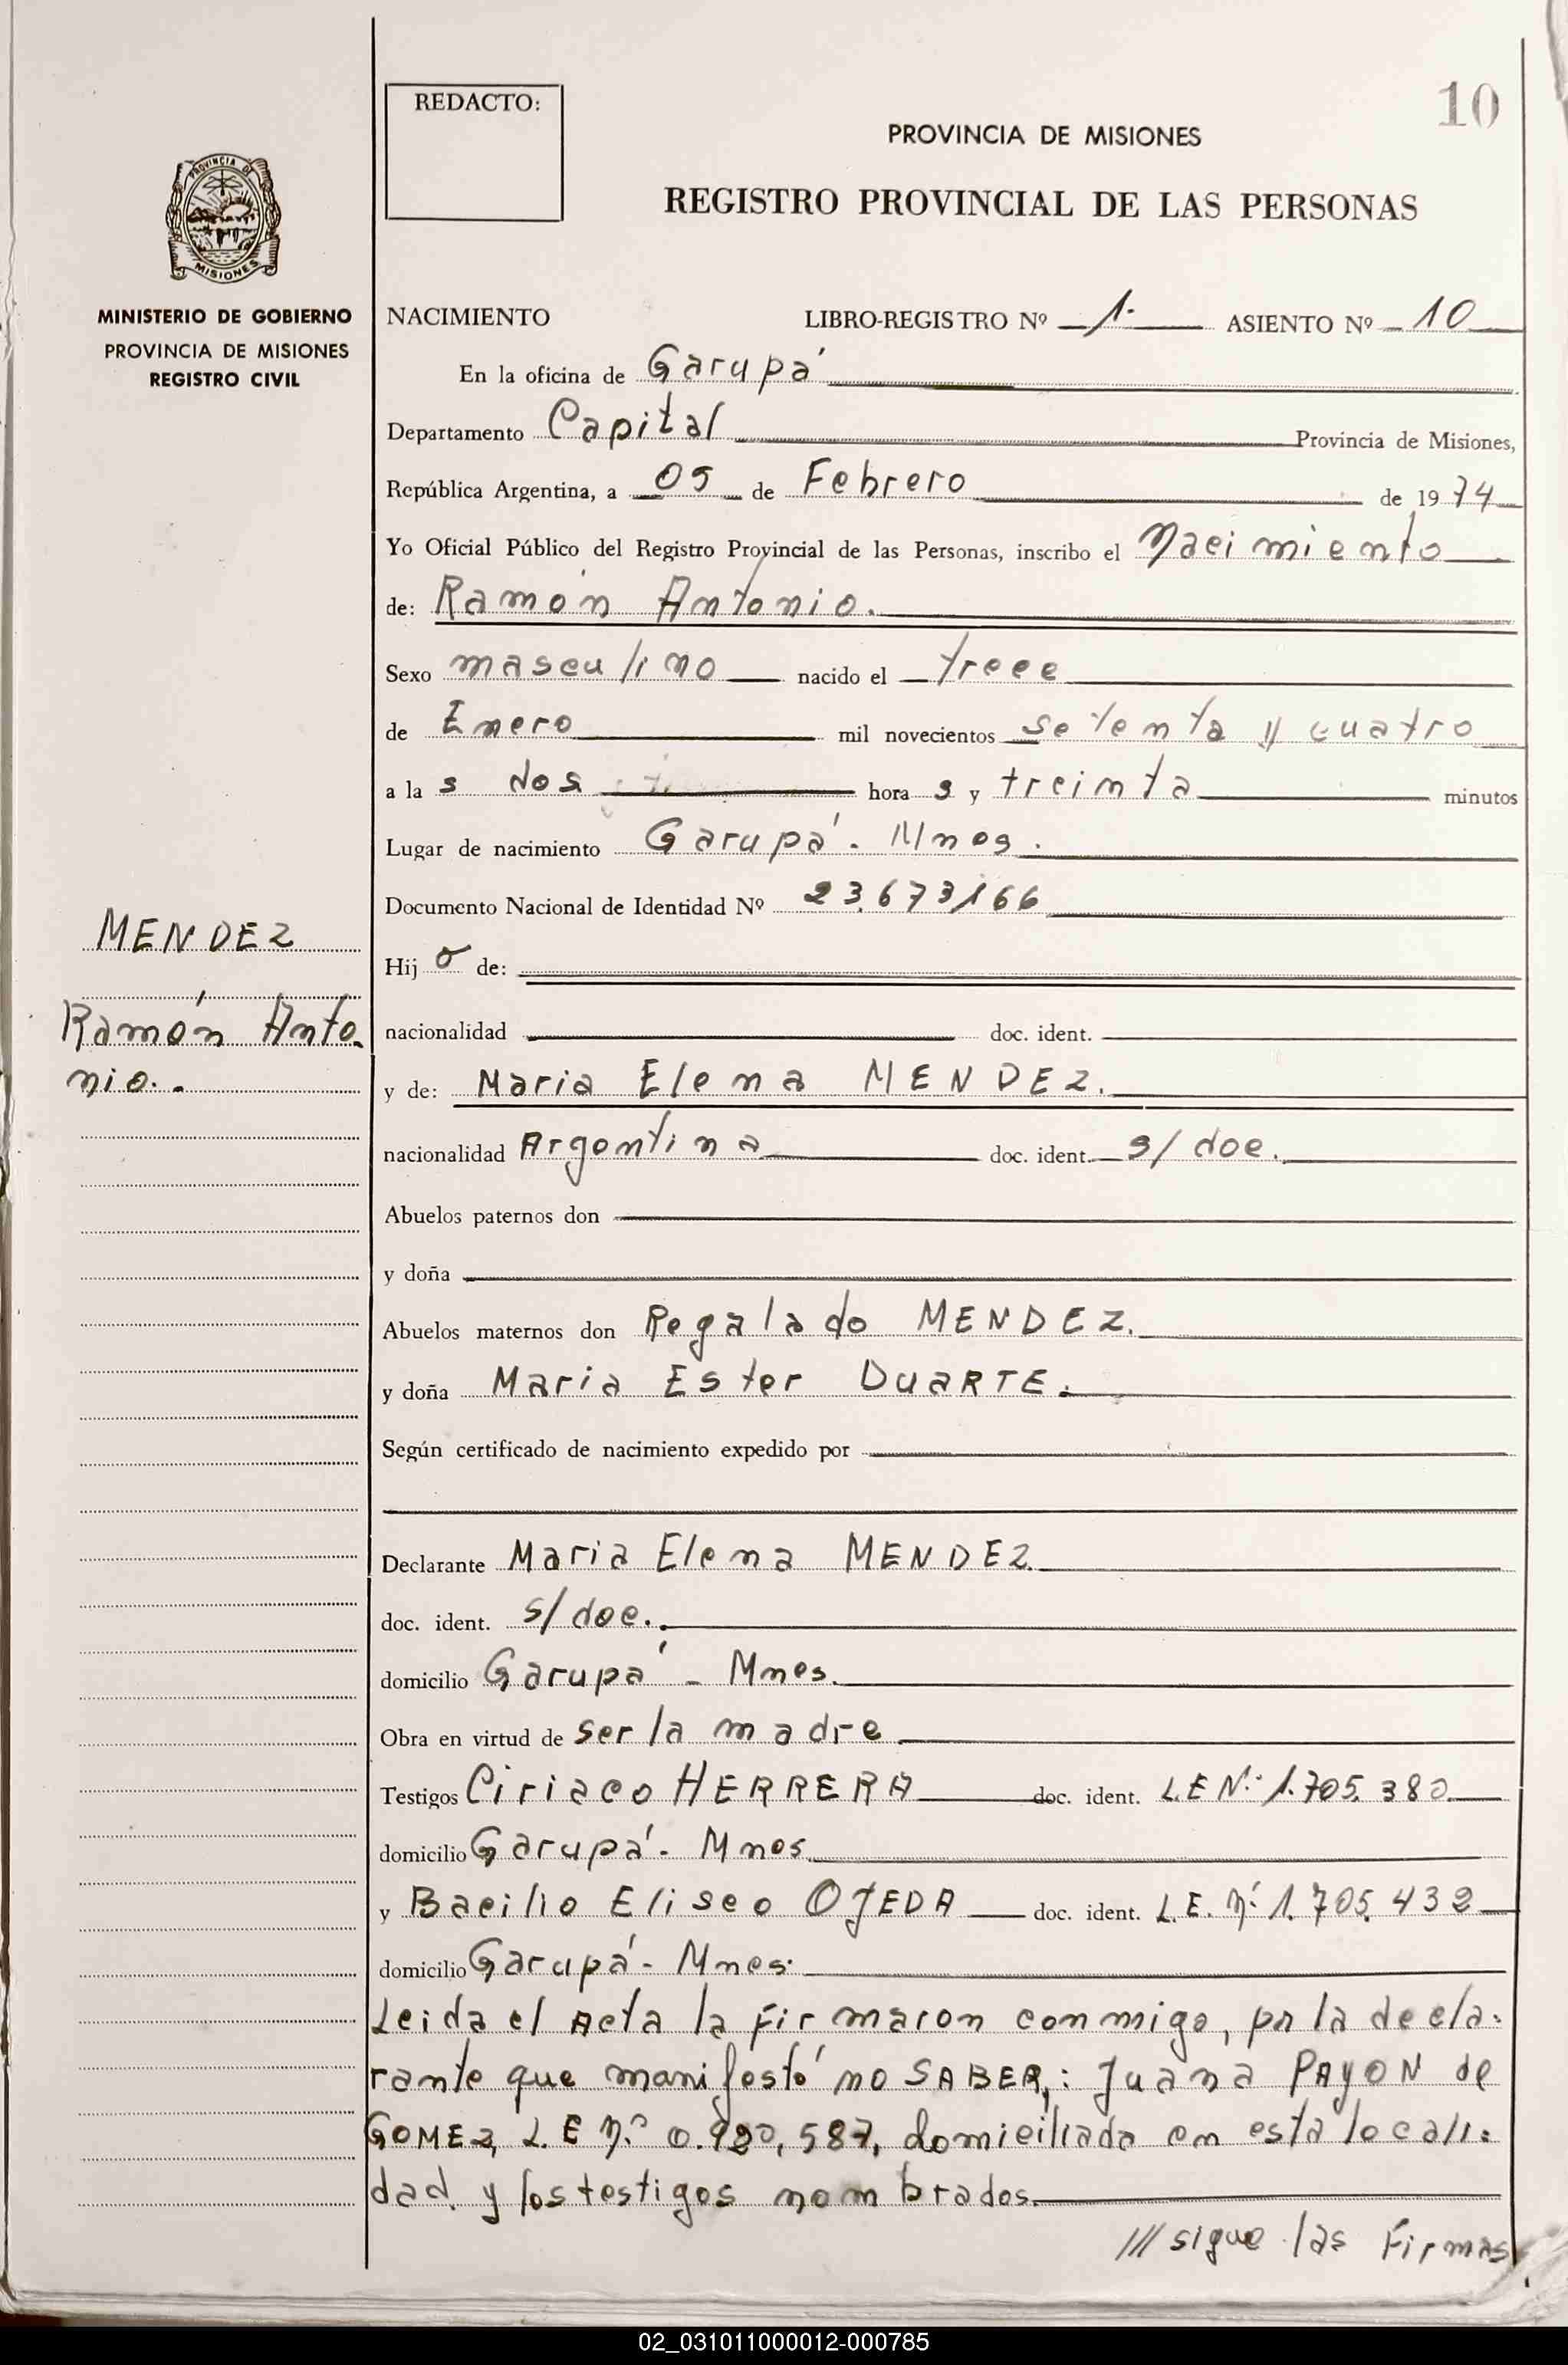 10
REDACTO:
PROVINCIA DE MISIONES
REGISTRO PROVINCIAL DE LAS PERSONAS
PROVINCIA DE
MISIONES
MINISTERIO DE GOBIERNO
PROVINCIA DE MISIONES
REGISTRO CIVIL
NACIMIENTO LIBRO-REGISTRO Nº 1. ASIENTO Nº 10
En la oficina de Garupá
Departamento Capital Provincia de Misiones,
República Argentina, a 05 de Febrero de 1974
Yo Oficial Público del Registro Provincial de las Personas, inscribo el Nacimiento
de: Ramón Antonio.
Sexo masculino nacido el trece
de Enero mil novecientos setenta y cuatro
a la s dos hora s y treinta minutos
Lugar de nacimiento Garupá. Mnes.
Documento Nacional de Identidad Nº 23.673,166
MENDEZ
Ramón Anto-
nio.-
Hij o de:
nacionalidad doc. ident.
y de: Maria Elena MENDEZ.
nacionalidad Argentina doc. ident. s/doc.
Abuelos paternos don
y doña
Abuelos maternos don Regalado MENDEZ.
y doña Maria Ester DUARTE.
Según certificado de nacimiento expedido por
Declarante Maria Elena MENDEZ.
doc. ident. s/doc.
domicilio Garupá - Mnes.
Obra en virtud de ser la madre
Testigos Ciriaco HERRERA doc. ident. L.E Nº 1.705.380.
domicilio Garupá - Mnes.
y Bacilio Eliseo OJEDA doc. ident. L.E. Nº 1.705.432
domicilio Garupá - Mnes.
Leida el Acta la firmaron conmigo, pr la decla-
rante que manifestó no SABER,: Juana PAYON de
GOMEZ, L.E Nº 0.920,587, domiciliada en esta locali-
dad y los testigos nombrados.
/// sigue las Firmas
02_031011000012-000785